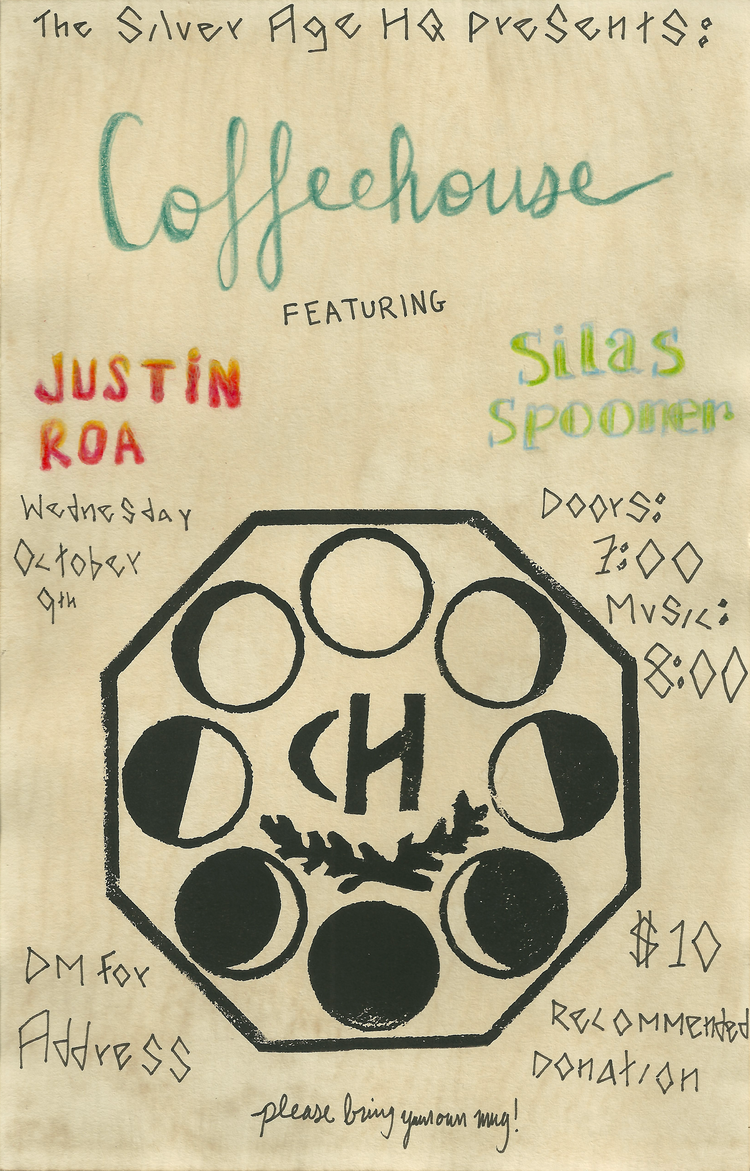 The Silver Age HQ Presents:
Coffeehouse
FEATURING
JUSTIN
ROA
Silas
Spooner
Wednesday
October
9th
Doors:
7:00
Music:
8:00
CH
$10
DM for
Address
Recommended
Donation
please bring your own mug!